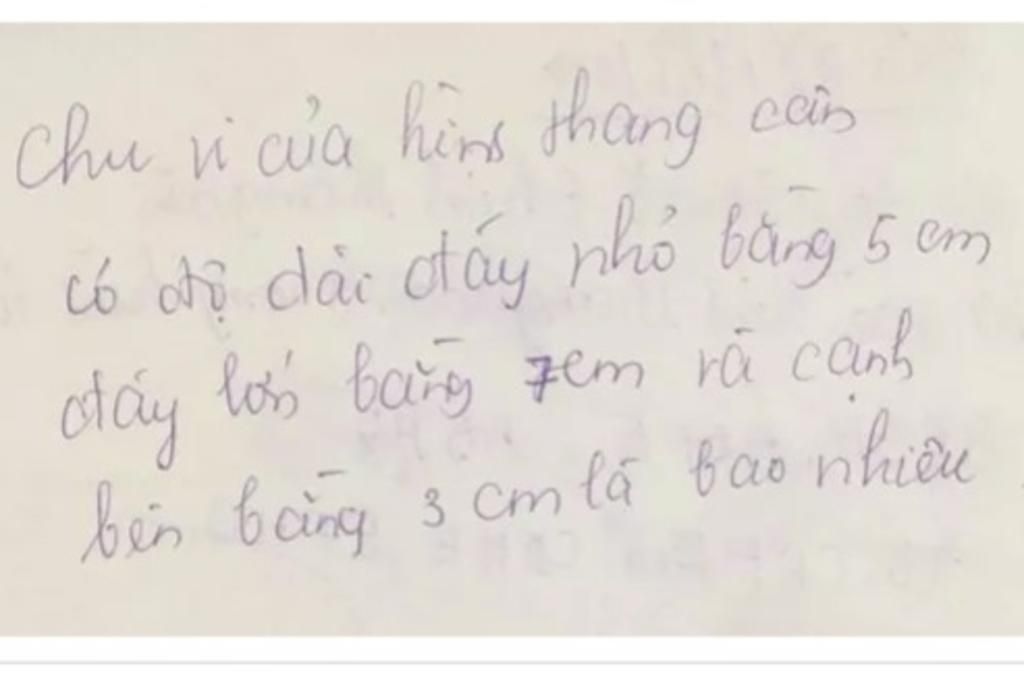 Chu vi của hình thang cân
có độ dài đáy nhỏ bằng 5 cm
đáy lớn bằng 7cm và cạnh
bên bằng 3 cm là bao nhiêu